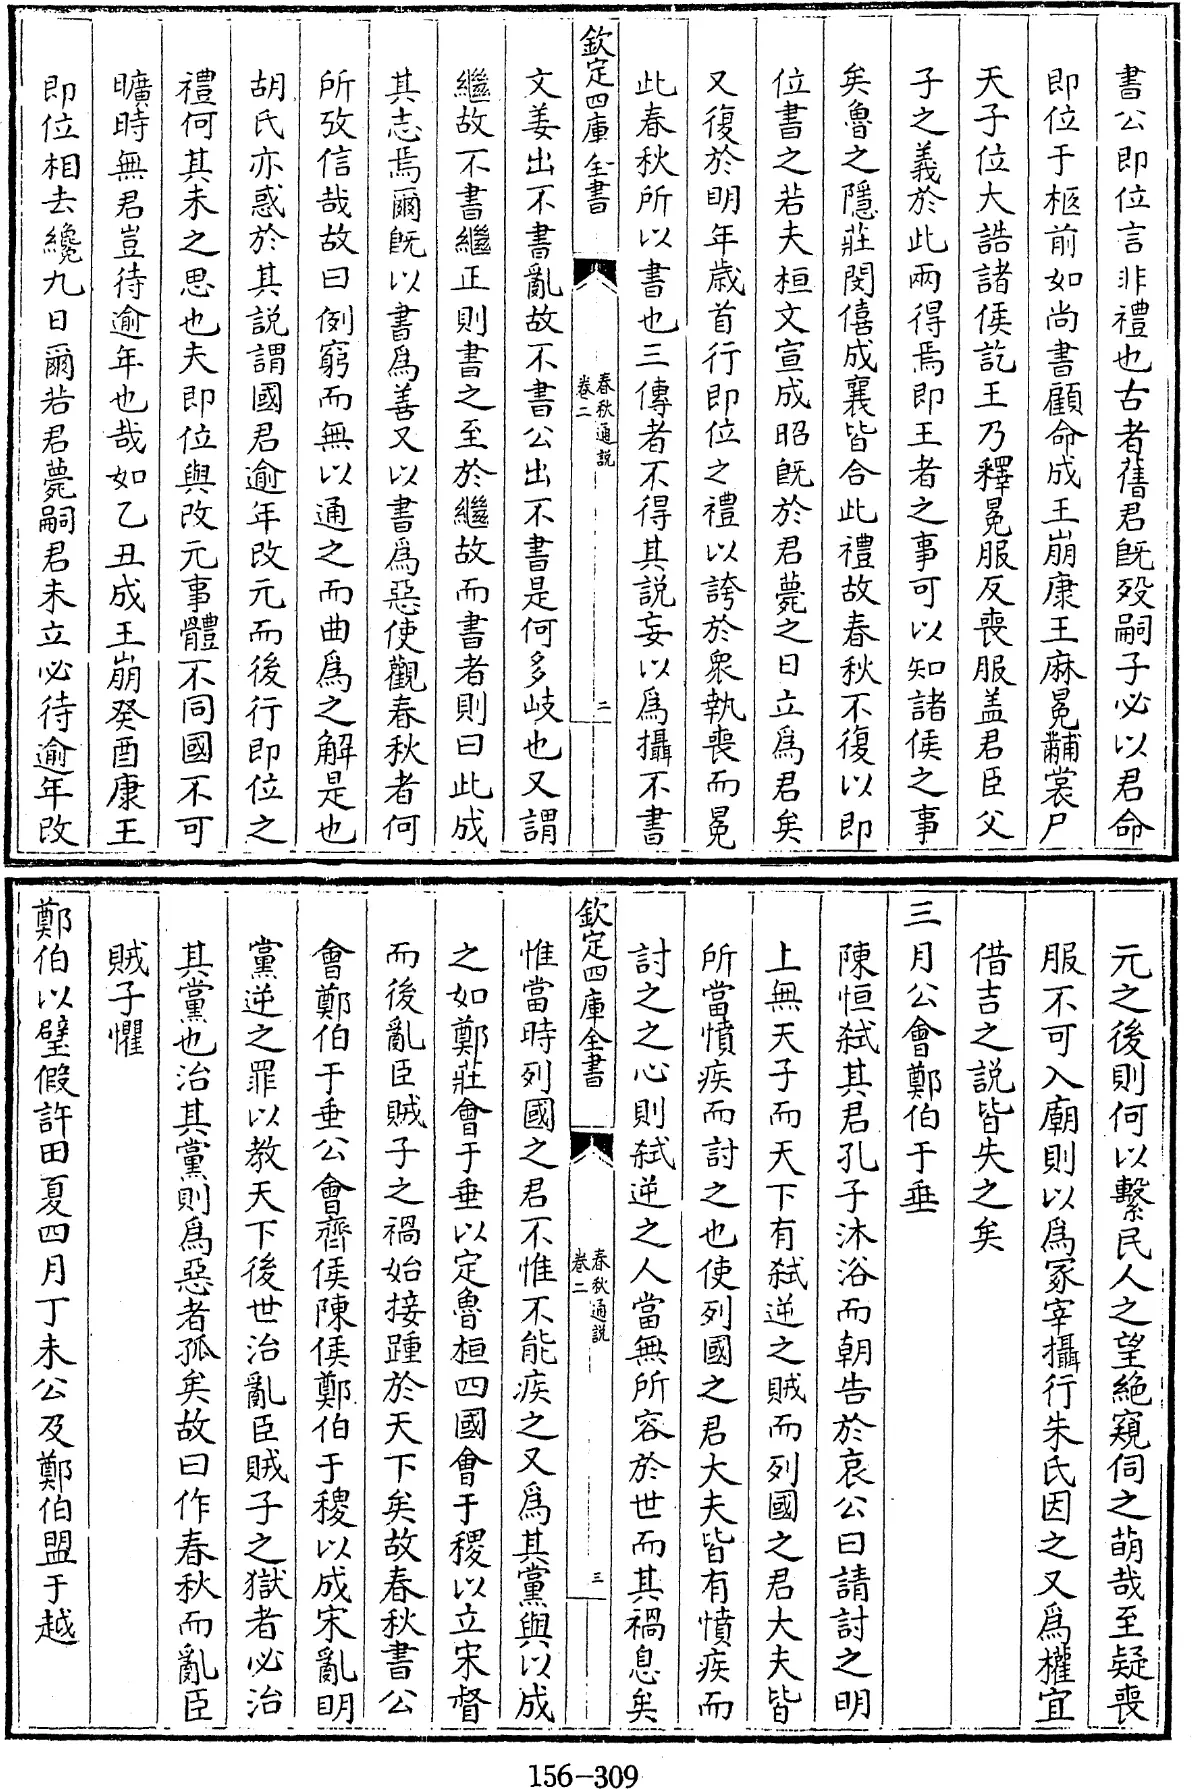 書公即位言非禮也古者舊君旣殁嗣子必以君命
即位于柩前如尚書顧命成王崩康王麻冕黼裳尸
天子位大誥諸侯訖王乃釋冕服反喪服盖君臣父
子之義於此兩得焉即王者之事可以知諸侯之事
矣魯之隱莊閔僖成襄皆合此禮故春秋不復以即
位書之若夫桓文宣成昭旣於君薨之日立爲君矣
又復於明年歲首行即位之禮以誇於衆執喪而冕
此春秋所以書也三傳者不得其說妄以爲攝不書
欽定四庫全書
春秋通説
卷二
二
文姜出不書亂故不書公出不書是何多岐也又謂
繼故不書繼正則書之至於繼故而書者則曰此成
其志焉爾旣以書爲善又以書爲惡使觀春秋者何
所攷信哉故曰例窮而無以通之而曲爲之解是也
胡氏亦惑於其説謂國君逾年改元而後行即位之
禮何其未之思也夫即位與改元事體不同國不可
曠時無君豈待逾年也哉如乙丑成王崩癸酉康王
即位相去纔九日爾若君薨嗣君未立必待逾年改
元之後則何以繫民人之望絶窺伺之萌哉至疑喪
服不可入廟則以爲冢宰攝行朱氏因之又爲權宜
借吉之説皆失之矣
三月公會鄭伯于垂
陳恒弑其君孔子沐浴而朝告於哀公曰請討之明
上無天子而天下有弑逆之賊而列國之君大夫皆
所當憤疾而討之也使列國之君大夫皆有憤疾而
討之之心則弑逆之人當無所容於世而其禍息矣
欽定四庫全書
春秋通説
卷二
三
惟當時列國之君不惟不能疾之又爲其黨與以成
之如鄭莊會于垂以定魯桓四國會于稷以立宋督
而後亂臣賊子之禍始接踵於天下矣故春秋書公
會鄭伯于垂公會齊侯陳侯鄭伯于稷以成宋亂明
黨逆之罪以教天下後世治亂臣賊子之獄者必治
其黨也治其黨則爲惡者孤矣故曰作春秋而亂臣
賊子懼
鄭伯以璧假許田夏四月丁未公及鄭伯盟于越
156-309